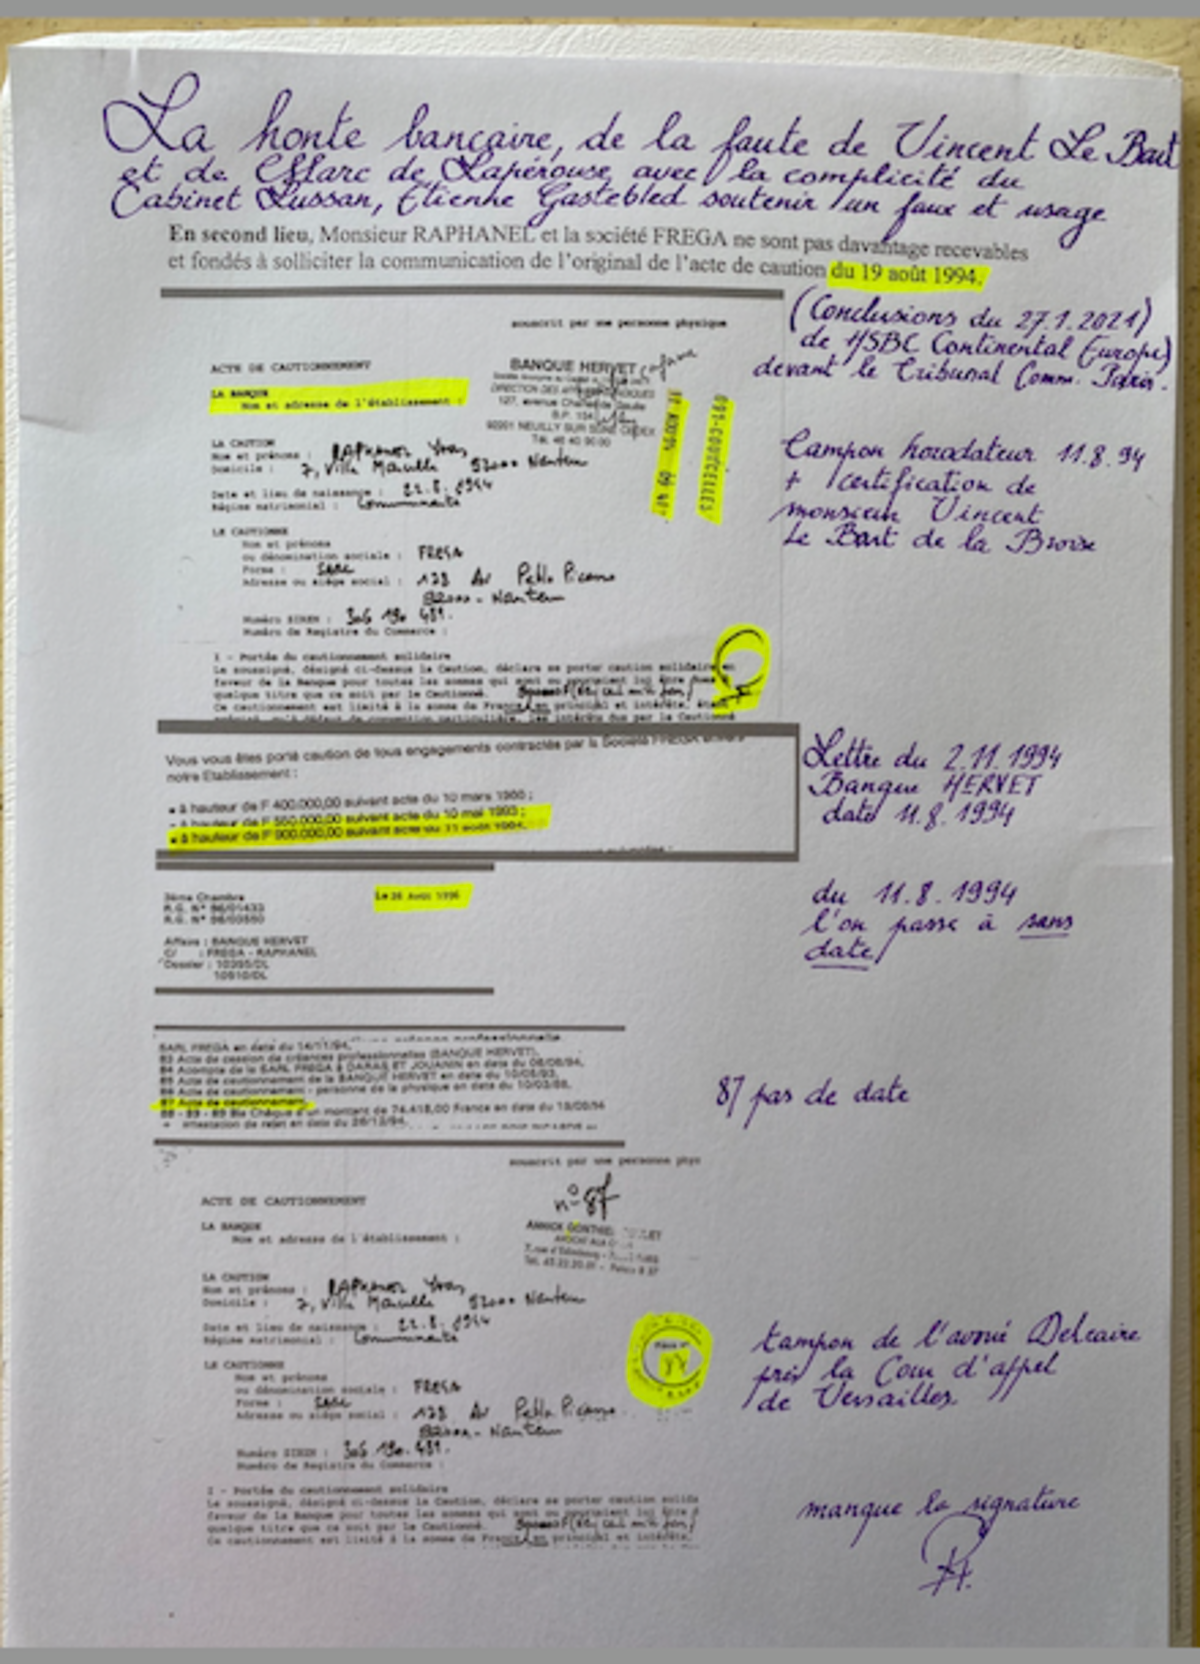 La honte bancaire, de la faute de Vincent Le Bart
et de Marc de Lapérouse avec la complicité du
Cabinet Lussan, Etienne Gastebled soutenir un faux et usage
En second lieu, Monsieur RAPHANEL et la société FREGA ne sont pas davantage recevables
et fondés à solliciter la communication de l'original de l'acte de caution du 19 août 1994.
(Conclusions du 27.1.2021)
de HSBC Continental Europe)
devant le Tribunal Comm. Paris.
souscrit par une personne physique
ACTE DE CAUTIONNEMENT
BANQUE HERVET
LA BANQUE
Nom et adresse de l'établissement :
127, avenue Charles de Gaulle
B.P.
92201 NEUILLY SUR SEINE CEDEX
091-COURCELLES
LA CAUTION
Nom et prénoms : RAPHANEL Yvan
Domicile : 7, Villa Marcelle 92000 Nanterre
Date et lieu de naissance : 22.8.1944
Régime matrimonial : Communauté
Tampon horodateur 11.8.94
+ certification de
monsieur Vincent
Le Bart de la Broise
LE CAUTIONNE
Nom et prénoms
ou dénomination sociale : FREGA
Forme : SARL
Adresse ou siège social : 128 Av Pablo Picasso
92000 - Nanterre
Numéro SIREN : 306 190 481.
Numéro de Registre du Commerce :
I - Portée du cautionnement solidaire
Le soussigné, désigné ci-dessus la Caution, déclare se porter caution solidaire en
faveur de la Banque pour toutes les sommes qui sont ou pourraient lui être dues
quelque titre que ce soit par le Cautionné.
Ce cautionnement est limité à la somme de Francs en principal et intérêts,
les intérêts dus par le Cautionné
Vous vous êtes porté caution de tous engagements contractés par la Société FREGA envers
notre Etablissement :
à hauteur de F 400.000,00 suivant acte du 10 mars 1988 ;
à hauteur de F 550.000,00 suivant acte du 10 mai 1993 ;
à hauteur de F 900.000,00 suivant acte du 11 août 1994.
Lettre du 2.11.1994
Banque HERVET
date 11.8.1994
3ème Chambre
R.G. N° 96/01433
R.G. N° 96/03550
Le 26 Août 1996
Affaire : BANQUE HERVET
C/ : FREGA - RAPHANEL
Dossier : 10395/DL
10910/DL
du 11.8.1994
l'on passe à sans
date
SARL FREGA en date du 14/11/94.
83 Acte de cession de créances professionnelles (BANQUE HERVET).
84 Acompte de la SARL FREGA à DARAS ET JOUANIN en date du 08/08/94.
85 Acte de cautionnement de la BANQUE HERVET en date du 10/05/93.
86 Acte de cautionnement - personne de la physique en date du 10/03/88.
87 Acte de cautionnement.
88 - 89 - 89 Bis Chèque d'un montant de 74.418,00 Francs en date du
+ attestation de rejet en date du 28/12/94.
87 pas de date
souscrit par une personne phys
ACTE DE CAUTIONNEMENT
n° 87
LA BANQUE
Nom et adresse de l'établissement :
LA CAUTION
Nom et prénoms : RAPHANEL Yvan
Domicile : 7, Villa Marcelle 92000 Nanterre
Date et lieu de naissance : 22.8.1944
Régime matrimonial : Communauté
LE CAUTIONNE
Nom et prénoms
ou dénomination sociale : FREGA
Forme : SARL
Adresse ou siège social : 128 Av Pablo Picasso
92000 - Nanterre
Numéro SIREN : 306 190 481.
Numéro de Registre du Commerce :
tampon de l'avoué Delcaire
près la Cour d'appel
de Versailles.
I - Portée du cautionnement solidaire
Le soussigné, désigné ci-dessus la Caution, déclare se porter caution solida
faveur de la Banque pour toutes les sommes qui sont ou pourraient lui être
quelque titre que ce soit par le Cautionné.
Ce cautionnement est limité à la somme de Francs en principal et intérêts,
manque la signature